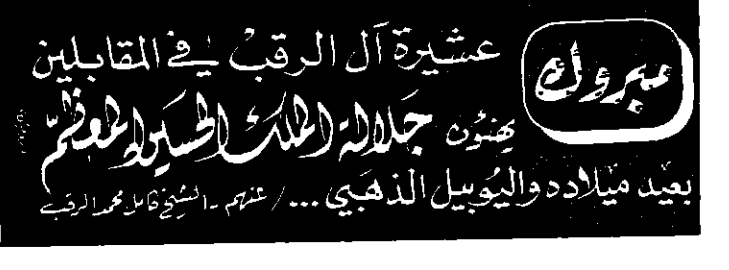 مبروك
عشيرة آل الرقب في المقابلين
يهنئون جلالة الملك الحسين المعظم
بعيد ميلاده واليوبيل الذهبي ... / عنهم - الشيخ كامل محمد الرقب